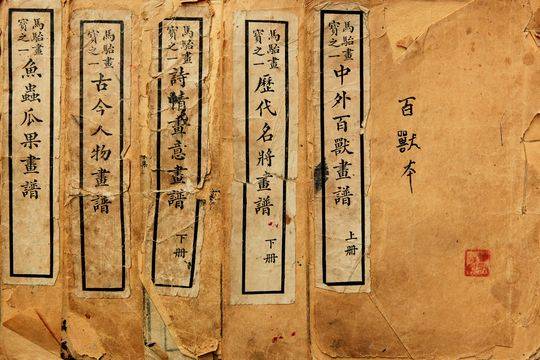 百獸本
馬駘畫
寶之一
中外百獸畫譜 上冊
馬駘畫
寶之一
歷代名將畫譜 下冊
馬駘畫
寶之一
詩情畫意畫譜 下冊
馬駘畫
寶之一
古今人物畫譜
馬駘畫
寶之一
魚蟲瓜果畫譜